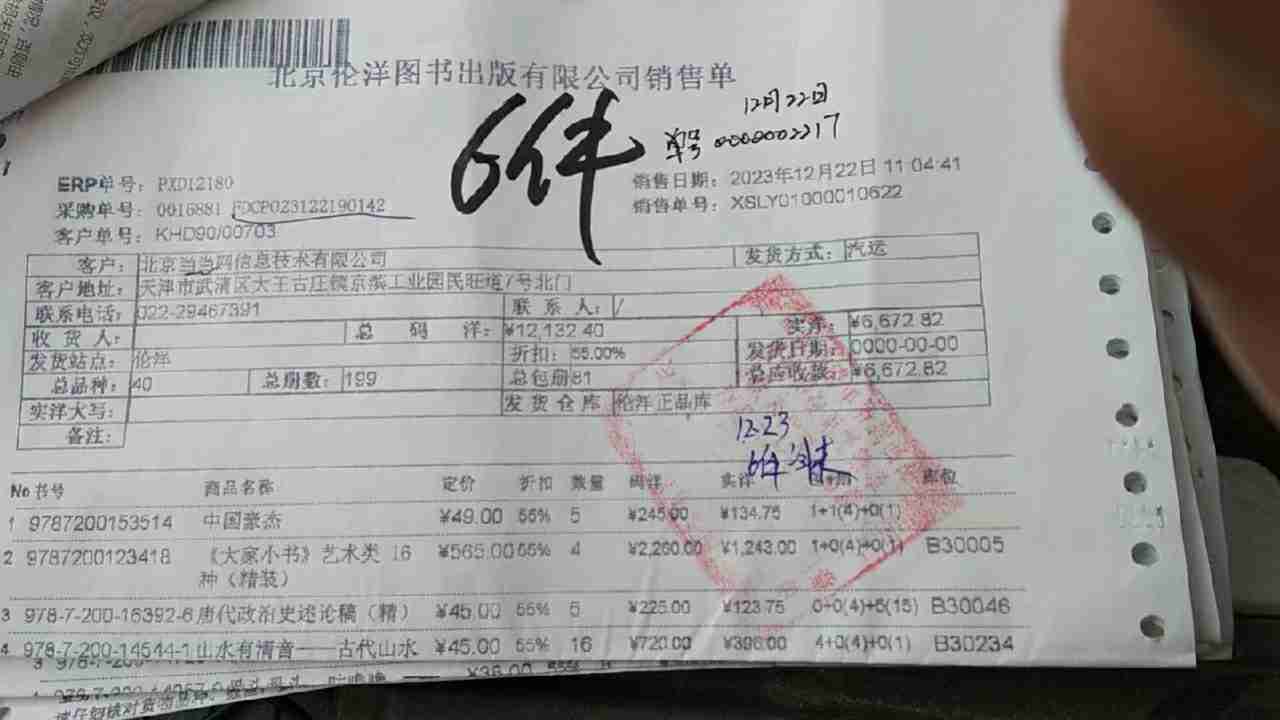 北京伦洋图书出版有限公司销售单
12月22日
6件
单号 0000002217
ERP单号： PXD12180
销售日期： 2023年12月22日 11:04:41
采购单号： 0016881 FDCP023122190142
销售单号： XSLY01000010622
客户单号： KHD90/00703
客户： 北京当当网信息技术有限公司 发货方式： 汽运
客户地址： 天津市武清区大王古庄镇京滨工业园民旺道7号北门
联系电话： 022-29467391 联系人： /
收货人： 总码洋： ¥12,132.40 实洋： ¥6,672.82
发货站点： 伦洋 折扣： 55.00% 发货日期： 0000-00-00
总品种： 40 总册数： 199 总包册 81 总应收款： ¥6,672.82
实洋大写： 发货仓库 伦洋正品库
备注：
12.23
6件
No 书号 商品名称 定价 折扣 数量 码洋 实洋 库位
1 9787200153514 中国豪杰 ¥49.00 55% 5 ¥245.00 ¥134.75 1+1(4)+0(1)
2 9787200123418 《大家小书》艺术类 16 ¥565.00 55% 4 ¥2,260.00 ¥1,243.00 1+0(4)+0(1) B30005
种（精装）
3 978-7-200-16392-6 唐代政治史述论稿（精） ¥45.00 55% 5 ¥225.00 ¥123.75 0+0(4)+5(15) B30046
4 978-7-200-14544-1 山水有清音——古代山水 ¥45.00 55% 16 ¥720.00 ¥396.00 4+0(4)+0(1) B30234
¥36.00